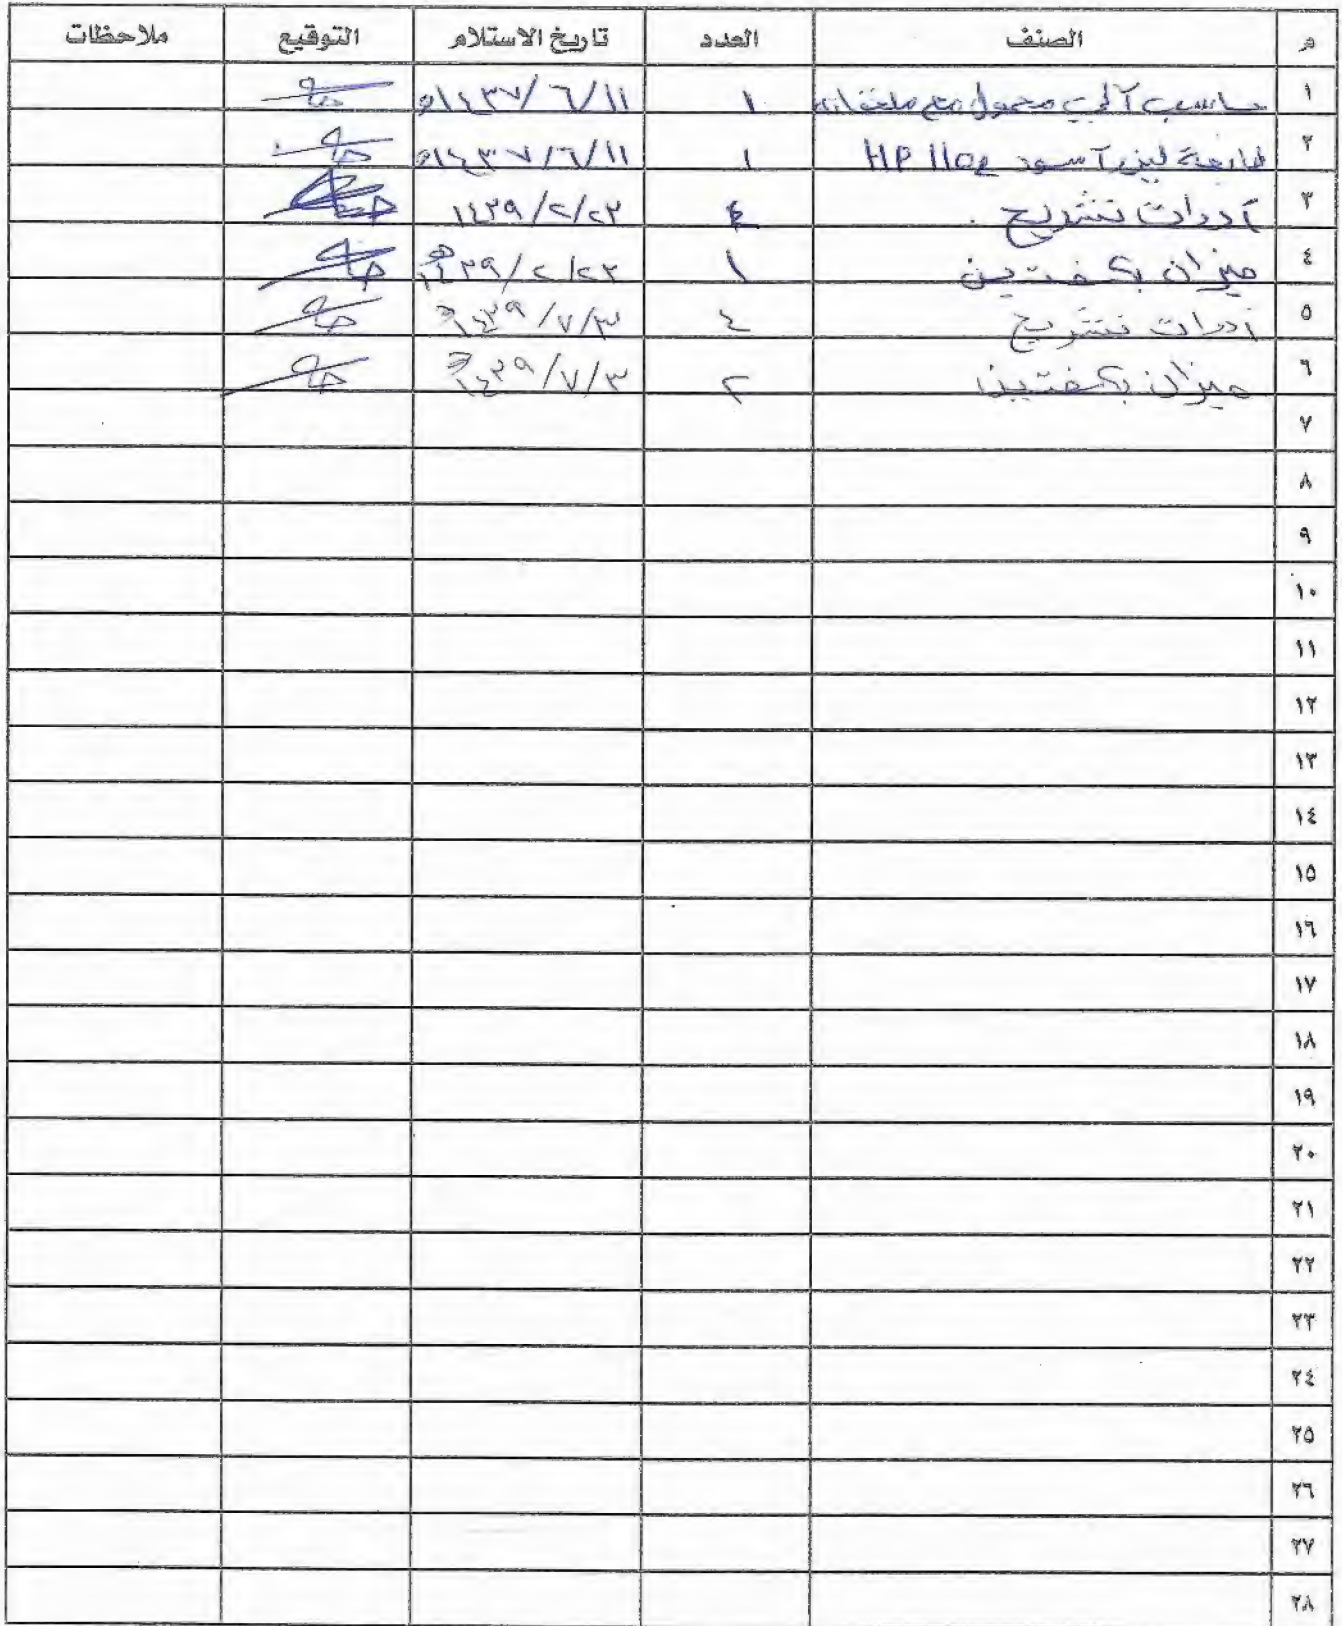 م الصنف العدد تاريخ الاستلام التوقيع ملاحظات
١ حاسب آلي محمول مع ملحقاته ١ ١٤٣٧/٦/١١هـ
٢ طابعة ليزر آسود HP ١ ١٤٣٧/٦/١١هـ
٣ آدوات تشريح . ٤ ١٤٣٩/٢/٢٣
٤ ميزان بكفتين ١ ١٤٣٩/٢/٢٣هـ
٥ أدوات تشريح ٤ ١٤٣٩/٧/٣هـ
٦ ميزان بكفتين ٢ ١٤٣٩/٧/٣هـ
٧
٨
٩
١٠
١١
١٢
١٣
١٤
١٥
١٦
١٧
١٨
١٩
٢٠
٢١
٢٢
٢٣
٢٤
٢٥
٢٦
٢٧
٢٨